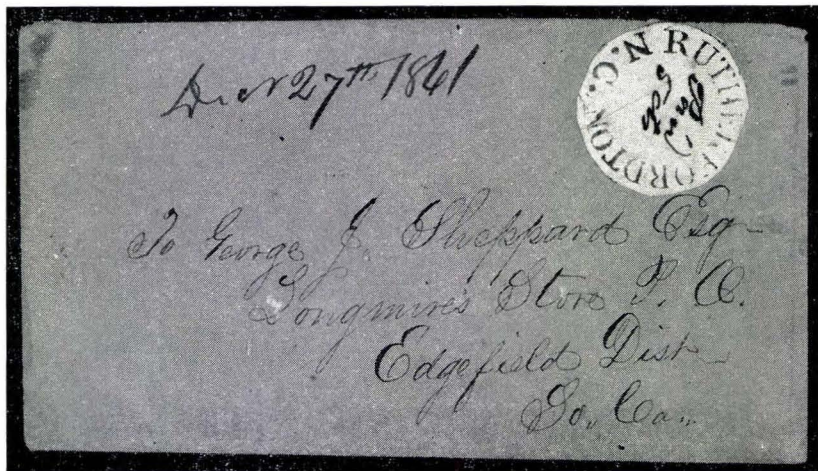 Decr 27th 1861
RUTHERFORDTON N.C.
Paid
5 cts
To George J. Sheppard Esq
Longmires Store P. O.
Edgefield Dist
So. Ca.